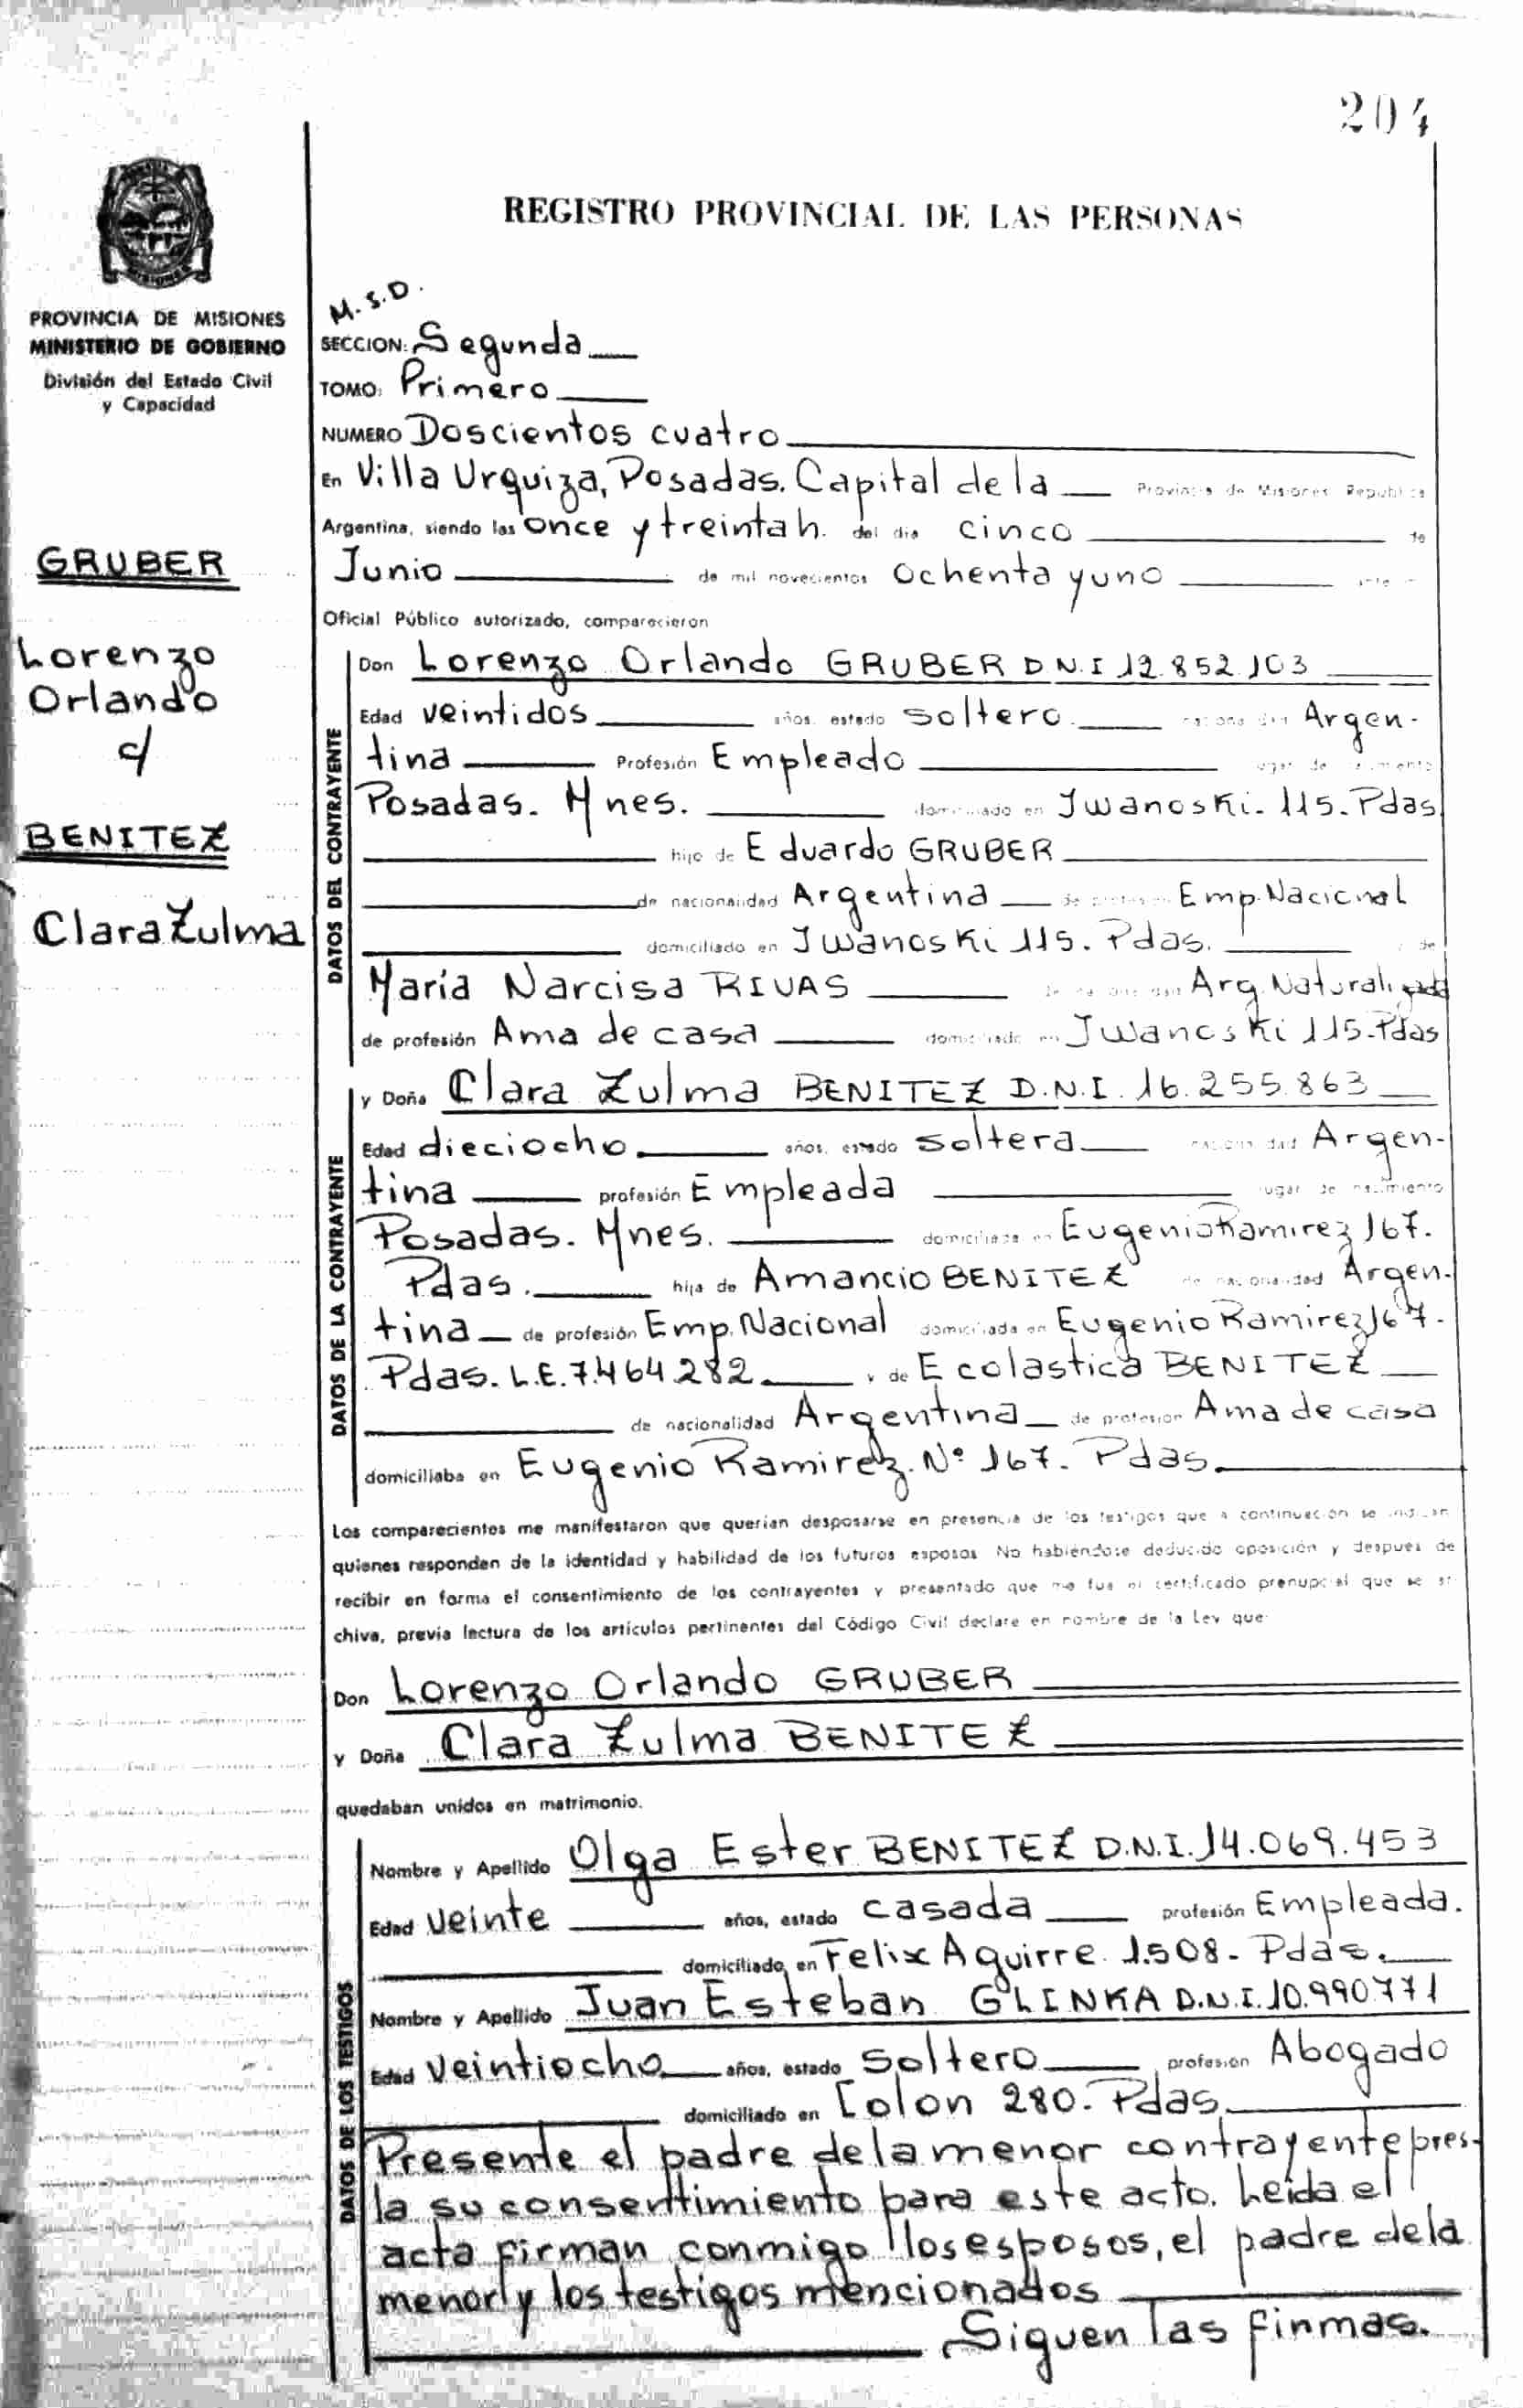 204
REGISTRO PROVINCIAL DE LAS PERSONAS
PROVINCIA DE MISIONES
MINISTERIO DE GOBIERNO
División del Estado Civil
y Capacidad
GRUBER
Lorenzo
Orlando
c/
BENITEZ
Clara Zulma
M.S.D.
SECCION: Segunda
TOMO: Primero
NUMERO Doscientos cuatro
En Villa Urquiza, Posadas. Capital de la Provincia de Misiones República
Argentina, siendo las once y treinta h. del día cinco de
Junio de mil novecientos ochenta y uno ante
Oficial Público autorizado, comparecieron
DATOS DEL CONTRAYENTE
Don Lorenzo Orlando GRUBER D N.I 12.852.103
Edad veintidos años, estado soltero nacionalidad Argen-
tina Profesión Empleado lugar de nacimiento
Posadas. Mnes. domiciliado en Iwanoski. 115. Pdas
hijo de Eduardo GRUBER
de nacionalidad Argentina de profesión Emp. Nacional
domiciliado en Iwanoski 115. Pdas. y de
María Narcisa RIVAS de nacionalidad Arg. Naturalizada
de profesión Ama de casa domiciliada en Iwanoski 115. Pdas
DATOS DE LA CONTRAYENTE
y Doña Clara Zulma BENITEZ D.N.I. 16.255.863
Edad dieciocho años, estado soltera nacionalidad Argen-
tina profesión Empleada lugar de nacimiento
Posadas. Mnes. domiciliada en Eugenio Ramirez 167.
Pdas. hija de Amancio BENITEZ de nacionalidad Argen-
tina de profesión Emp. Nacional domiciliada en Eugenio Ramirez 167.
Pdas. L.E. 7.464.282 y de Ecolastica BENITEZ
de nacionalidad Argentina de profesión Ama de casa
domiciliaba en Eugenio Ramirez. Nº 167. Pdas.
Los comparecientes me manifestaron que querían desposarse en presencia de los testigos que a continuación se indican
quienes responden de la identidad y habilidad de los futuros esposos No habiéndose deducido oposición y después de
recibir en forma el consentimiento de los contrayentes y presentado que me fue el certificado prenupcial que se ar
chiva, previa lectura de los artículos pertinentes del Código Civil declare en nombre de la Ley que
Don Lorenzo Orlando GRUBER
y Doña Clara Zulma BENITEZ
quedaban unidos en matrimonio.
DATOS DE LOS TESTIGOS
Nombre y Apellido Olga Ester BENITEZ D.N.I. 14.069.453
Edad veinte años, estado casada profesión Empleada.
domiciliado en Felix Aguirre 1.508- Pdas.
Nombre y Apellido Juan Esteban GLINKA D.N.I. 10.990.771
Edad veintiocho años, estado soltero profesión Abogado
domiciliado en Colon 280. Pdas
Presente el padre de la menor contrayente pres-
ta su consentimiento para este acto. Leida el
acta firman conmigo los esposos, el padre de la
menor y los testigos mencionados
Siguen las firmas.